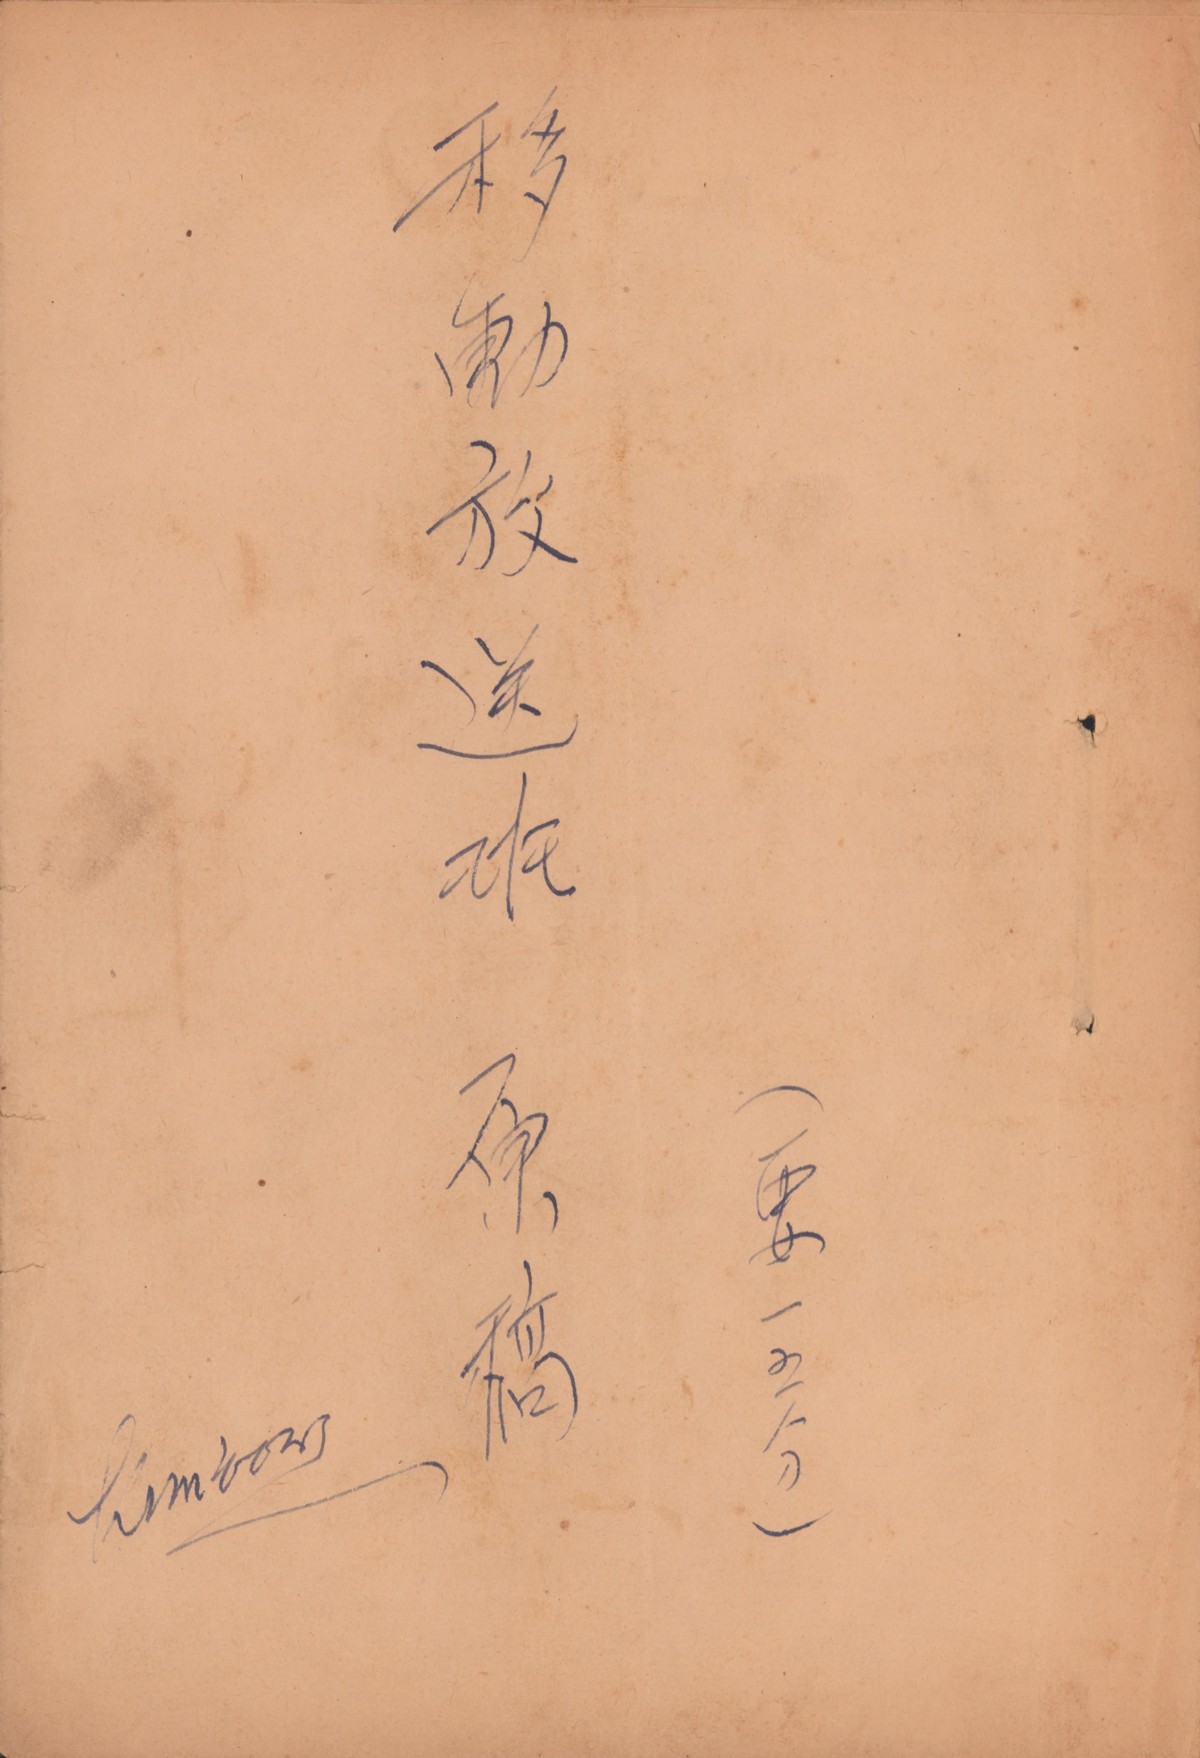 (要一五分)
移動放送班 原稿